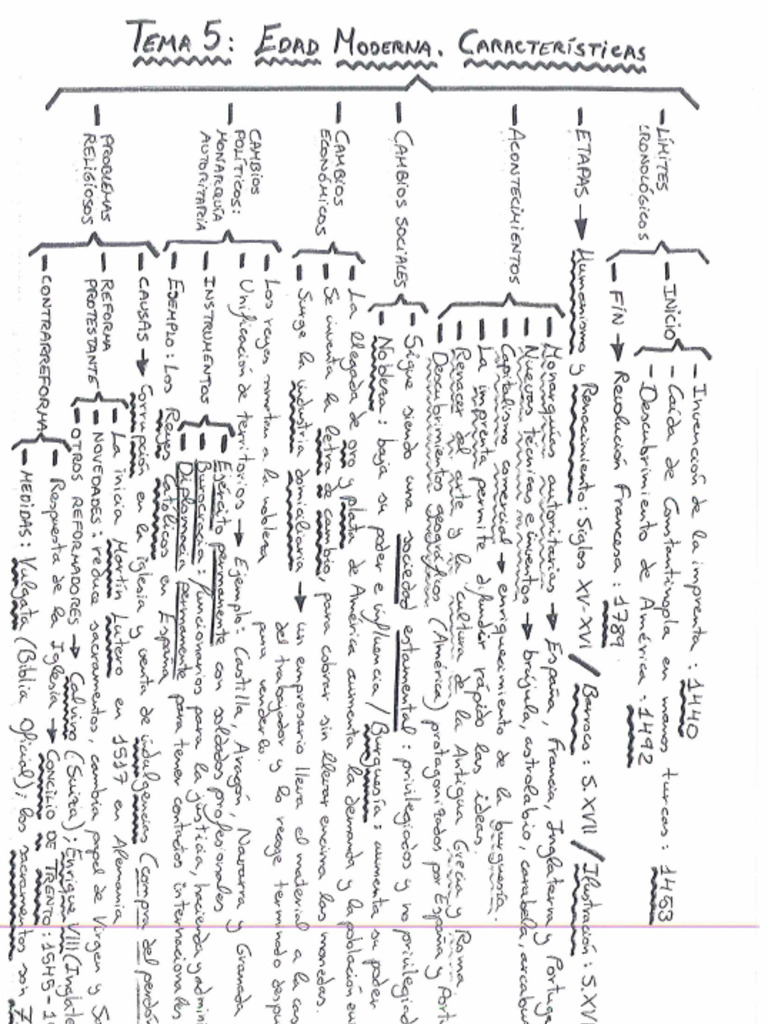 TEMA 5: EDAD MODERNA. CARACTERÍSTICAS
- LÍMITES CRONOLÓGICOS
- INICIO
- Invención de la imprenta: 1440
- Caída de Constantinopla en manos turcas: 1453
- Descubrimiento de América: 1492
- FIN → Revolución Francesa: 1789
- ETAPAS → Humanismo y Renacimiento: Siglos XV-XVI / Barroco: S.XVII / Ilustración: S.XVI
- ACONTECIMIENTOS
- Monarquías autoritarias → España, Francia, Inglaterra y Portuga
- Nuevas técnicas e inventos → brújula, astrolabio, carabela, arcabu
- Capitalismo comercial → enriquecimiento de la burguesía.
- La imprenta permite difundir rápido las ideas.
- Renacer del arte y la cultura de la Antigua Grecia y Roma
- Descubrimientos geográficos (América) protagonizados por España y Port
- CAMBIOS SOCIALES
- Sigue siendo una sociedad estamental: privilegiados y no privilegiad
- Nobleza: baja su poder e influencia / Burguesía: aumenta su poder
- CAMBIOS ECONÓMICOS
- La llegada de oro y plata de América aumenta la demanda y la población eu
- Se inventa la letra de cambio, para cobrar sin llevar encima las monedas.
- Surge la industria domiciliaria → un empresario lleva el material a la cas
del trabajador y lo recoge terminado despu
para venderlo.
- CAMBIOS POLÍTICOS: MONARQUÍA AUTORITARIA
- Los reyes someten a la nobleza
- Unificación de territorios → Ejemplo: Castilla, Aragón, Navarra y Granada
- INSTRUMENTOS
- Ejército permanente con soldados profesionales
- Burocracia: funcionarios para la justicia, hacienda y admini
- Diplomacia permanente para tener contactos internacionales
- EJEMPLO: Los Reyes Católicos en España
- PROBLEMAS RELIGIOSOS
- CAUSAS → Corrupción en la iglesia y venta de indulgencias (compra del perdón
- REFORMA PROTESTANTE
- La inicia Martín Lutero en 1517 en Alemania
- NOVEDADES: reduce sacramentos, cambia papel de Virgen y Sa
- OTROS REFORMADORES → Calvino (Suiza); Enrique VIII (Inglate
- CONTRARREFORMA
- Respuesta de la Iglesia → CONCILIO DE TRENTO: 1545-1
- MEDIDAS: Vulgata (Biblia oficial); los sacramentos son 7